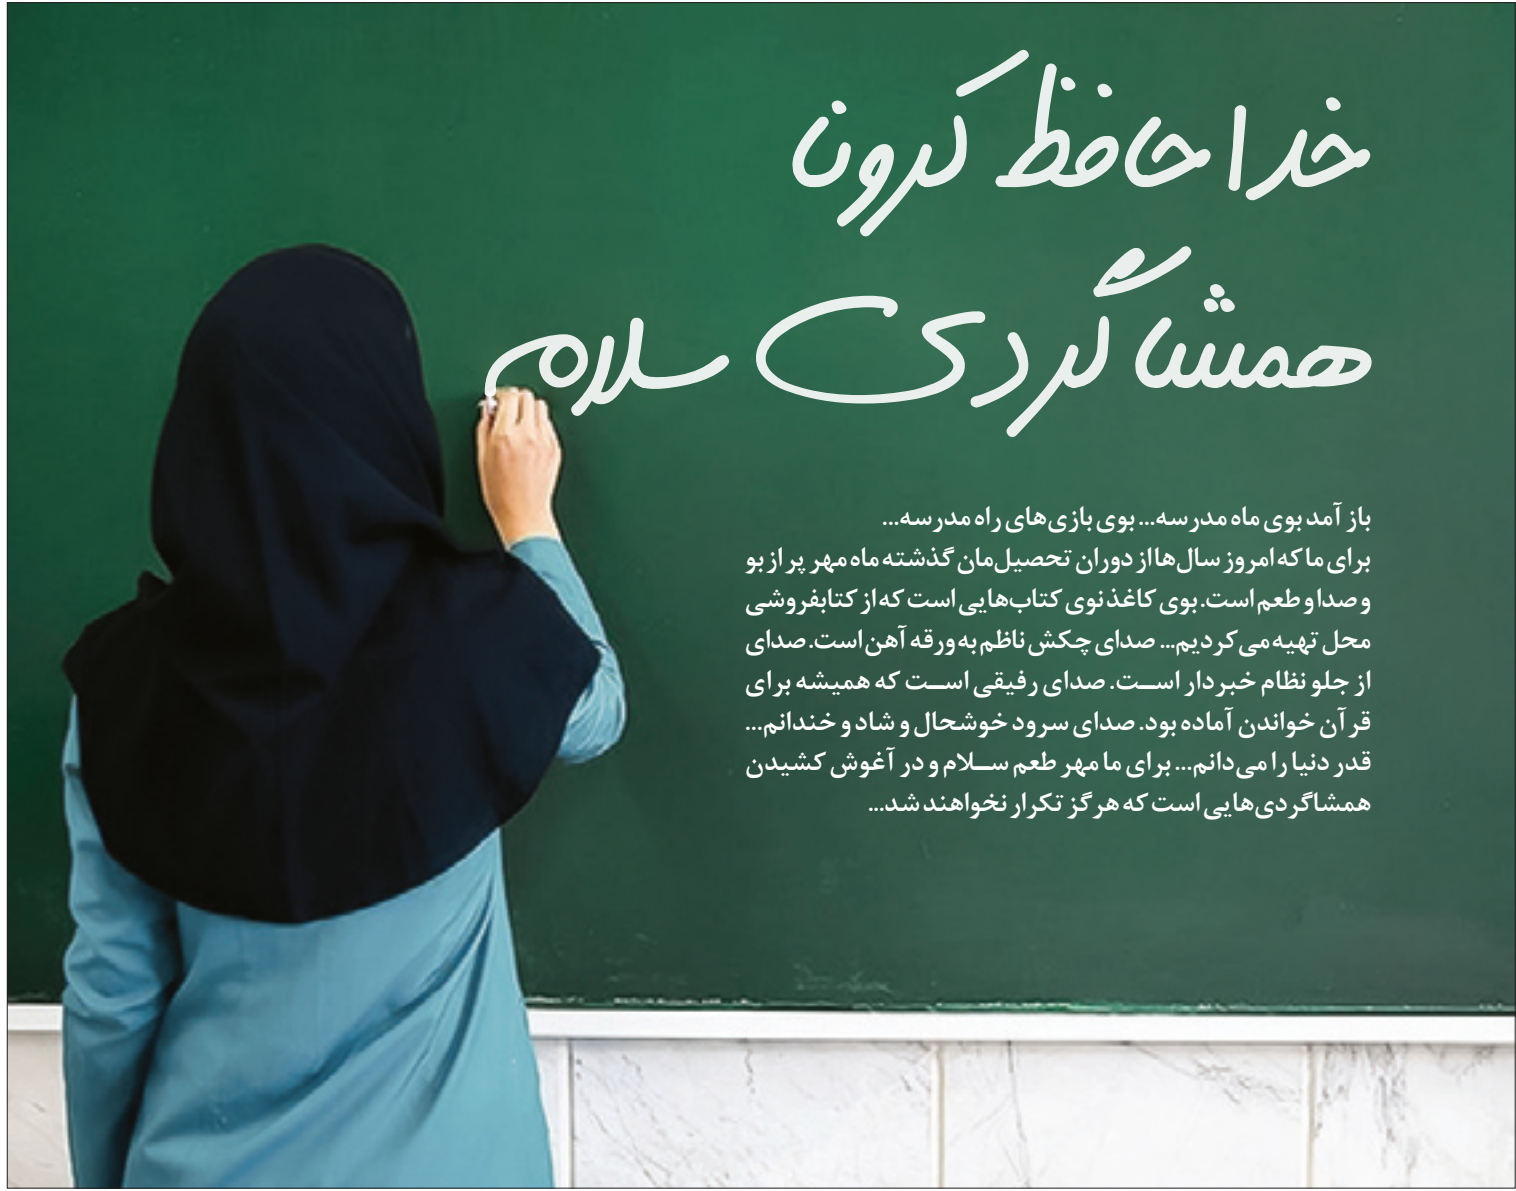 خداحافظ کرونا
همشاگردی سلام
باز آمد بوی ماه مدرسه... بوی بازی‌های راه مدرسه...
برای ما که امروز سال‌ها از دوران تحصیل‌مان گذشته ماه مهر پر از بو
و صدا و طعم است. بوی کاغذ نوی کتاب‌هایی است که از کتابفروشی
محل تهیه می‌کردیم... صدای چکش ناظم به ورقه آهن است. صدای
از جلو نظام خبردار اســت. صدای رفیقی اســت که همیشه برای
قرآن خواندن آماده بود. صدای سرود خوشحال و شاد و خندانم...
قدر دنیا را می‌دانم... برای ما مهر طعم ســلام و در آغوش کشیدن
همشاگردی‌هایی است که هرگز تکرار نخواهند شد...